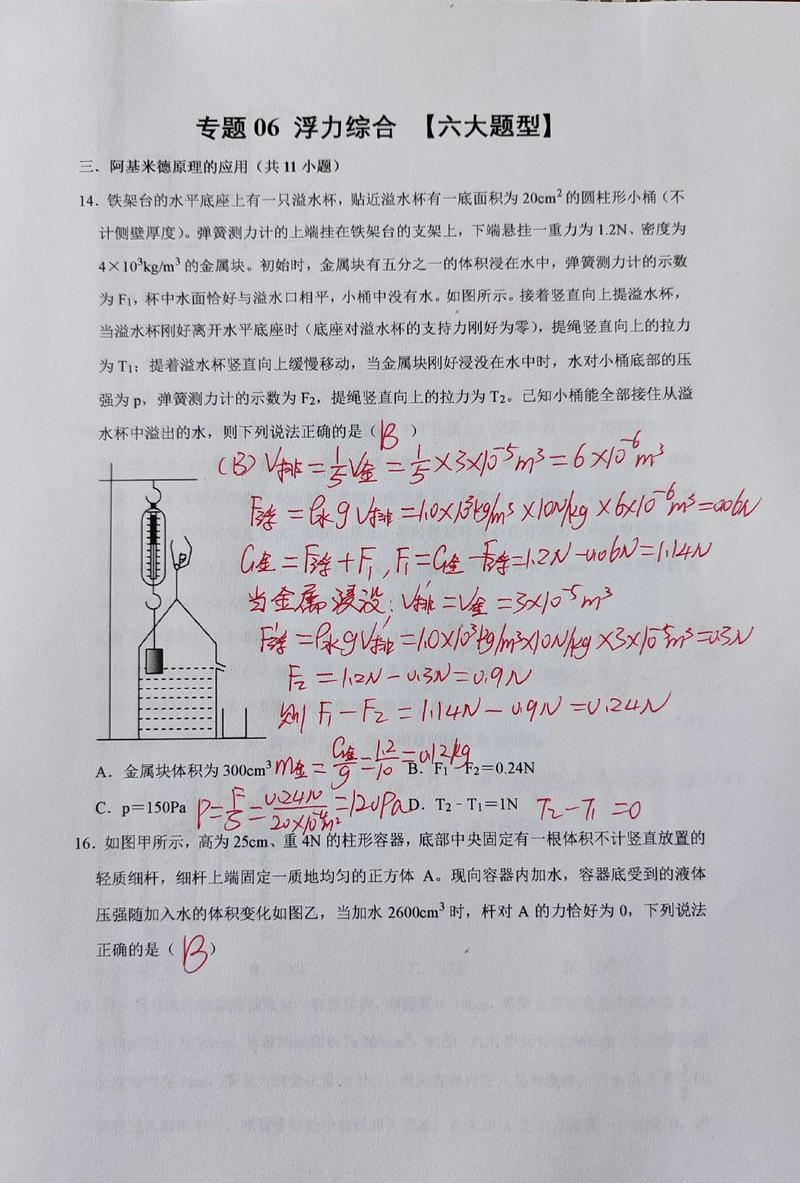 专题 06 浮力综合 【六大题型】
三．阿基米德原理的应用（共 11 小题）
14．铁架台的水平底座上有一只溢水杯，贴近溢水杯有一底面积为 20cm²的圆柱形小桶（不
计侧壁厚度）。弹簧测力计的上端挂在铁架台的支架上，下端悬挂一重力为 1.2N、密度为
4×10³kg/m³的金属块。初始时，金属块有五分之一的体积浸在水中，弹簧测力计的示数
为 F₁，杯中水面恰好与溢水口相平，小桶中没有水。如图所示。接着竖直向上提溢水杯，
当溢水杯刚好离开水平底座时（底座对溢水杯的支持力刚好为零），提绳竖直向上的拉力
为 T₁；提着溢水杯竖直向上缓慢移动，当金属块刚好浸没在水中时，水对小桶底部的压
强为 p，弹簧测力计的示数为 F₂，提绳竖直向上的拉力为 T₂。已知小桶能全部接住从溢
水杯中溢出的水，则下列说法正确的是（ B ）
(B) V排=1/5V金=1/5×3×10⁻⁵m³=6×10⁻⁶m³
F浮=ρ水gV排=1.0×10³kg/m³×10N/kg×6×10⁻⁶m³=0.06N
G金=F浮+F₁, F₁=G金-F浮=1.2N-0.06N=1.14N
当金属浸没: V排'=V金=3×10⁻⁵m³
F浮'=ρ水gV排'=1.0×10³kg/m³×10N/kg×3×10⁻⁵m³=0.3N
F₂=1.2N-0.3N=0.9N
则 F₁-F₂=1.14N-0.9N=0.24N
A．金属块体积为 300cm³ m金=G金/g=1.2/10=0.12kg B．F₁﹣F₂＝0.24N
C．p＝150Pa P=F/S=0.24N/20×10⁻⁴m²=120Pa D．T₂﹣T₁＝1N T₂-T₁=0
16．如图甲所示，高为 25cm、重 4N 的柱形容器，底部中央固定有一根体积不计竖直放置的
轻质细杆，细杆上端固定一质地均匀的正方体 A。现向容器内加水，容器底受到的液体
压强随加入水的体积变化如图乙，当加水 2600cm³ 时，杆对 A 的力恰好为 0，下列说法
正确的是（ B ）